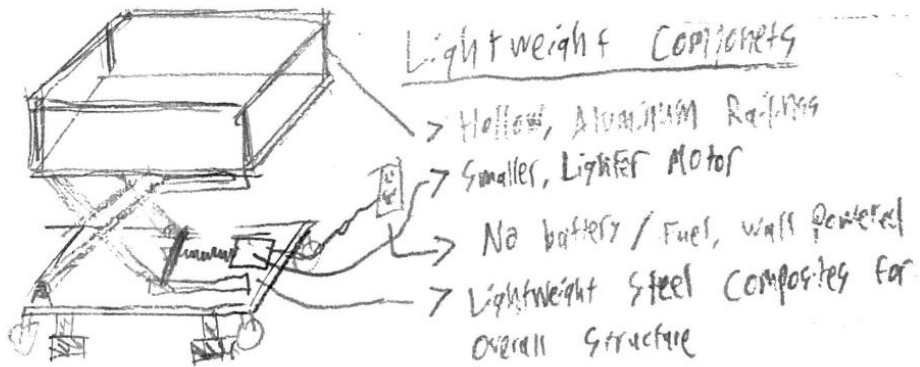 Lightweight Componets
> Hollow, Aluminum Railings
> Smaller, Lighter Motor
> No battery / Fuel, Wall Powered
> Lightweight Steel Composites for
Overall Structure